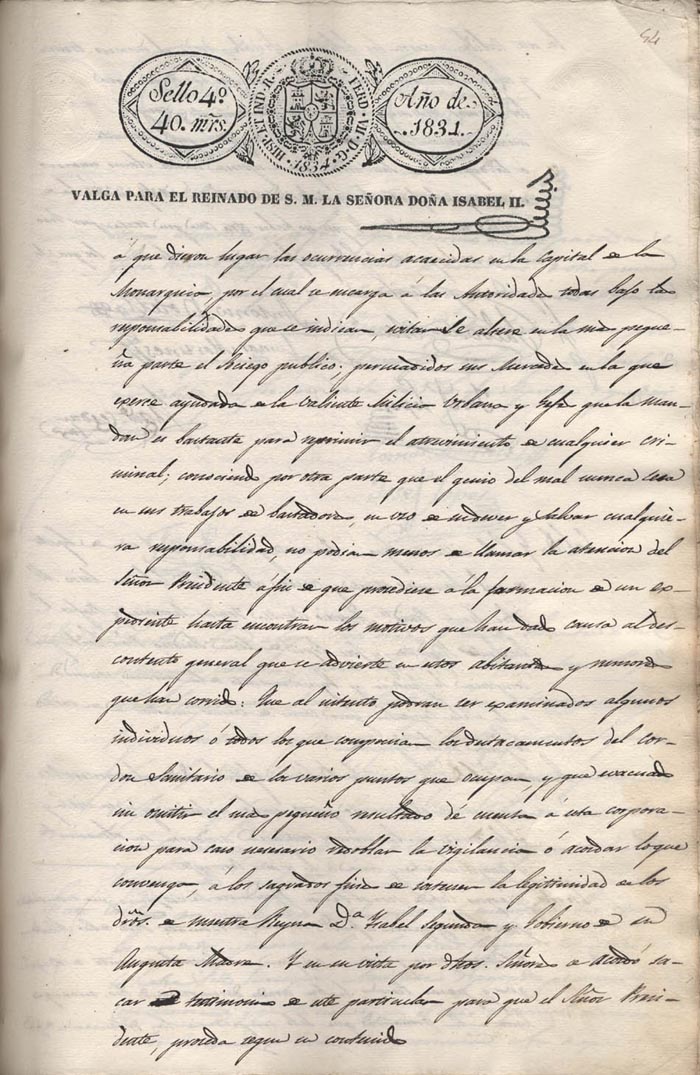 54
Sello 4º
40. mrs.
HISP. ET IND. R. FERD. VII. D. G. 1834
Año de
1834.
VALGA PARA EL REINADO DE S. M. LA SEÑORA DOÑA ISABEL II.
á que dieron lugar las ocurrencias acaecidas en la Capital de la
Monarquia, por el cual se encarga á las Autoridades todas bajo las
responsabilidades que se indican, evitar se altere en la mas peque-
ña parte el sosiego publico: persuadidos sus Mercedes en la que
exerce ayudada de la Valiente Milicia Urbana y Gefes que la man-
dan es bastante para reprimir el atrevimiento de cualquier cri-
minal; conociendo por otra parte que el genio del mal nunca cesa
en sus trabajos de, en y salvar cualquie-
ra responsabilidad, no podian menos de llamar la atencion del
Señor Presidente á fin de que procediese á la formacion de un ex-
pediente hasta encontrar los motivos que han dado causa al des-
contento general que se advierte en estos abitantes y rumores
que han corrido: Que al intento podran ser examinados algunos
individuos ó todos los que componian los destacamentos del Cor-
don Sanitario de los varios puntos que ocupan, y que evacuado
sin omitir el mas pequeño resultado dé cuenta á esta corpora-
cion para caso necesario redoblar la vigilancia ó acordar lo que
convenga, á los sagrados fines de sostener la legitimidad de los
dros. de nuestra Reyna D.ª Ysabel Segunda y Gobierno de su
Augusta Madre. Y en su vista por dhos. Señores se acordó sa-
car testimonio de este particular para que el Señor Presi-
dente, proceda segun su contenido